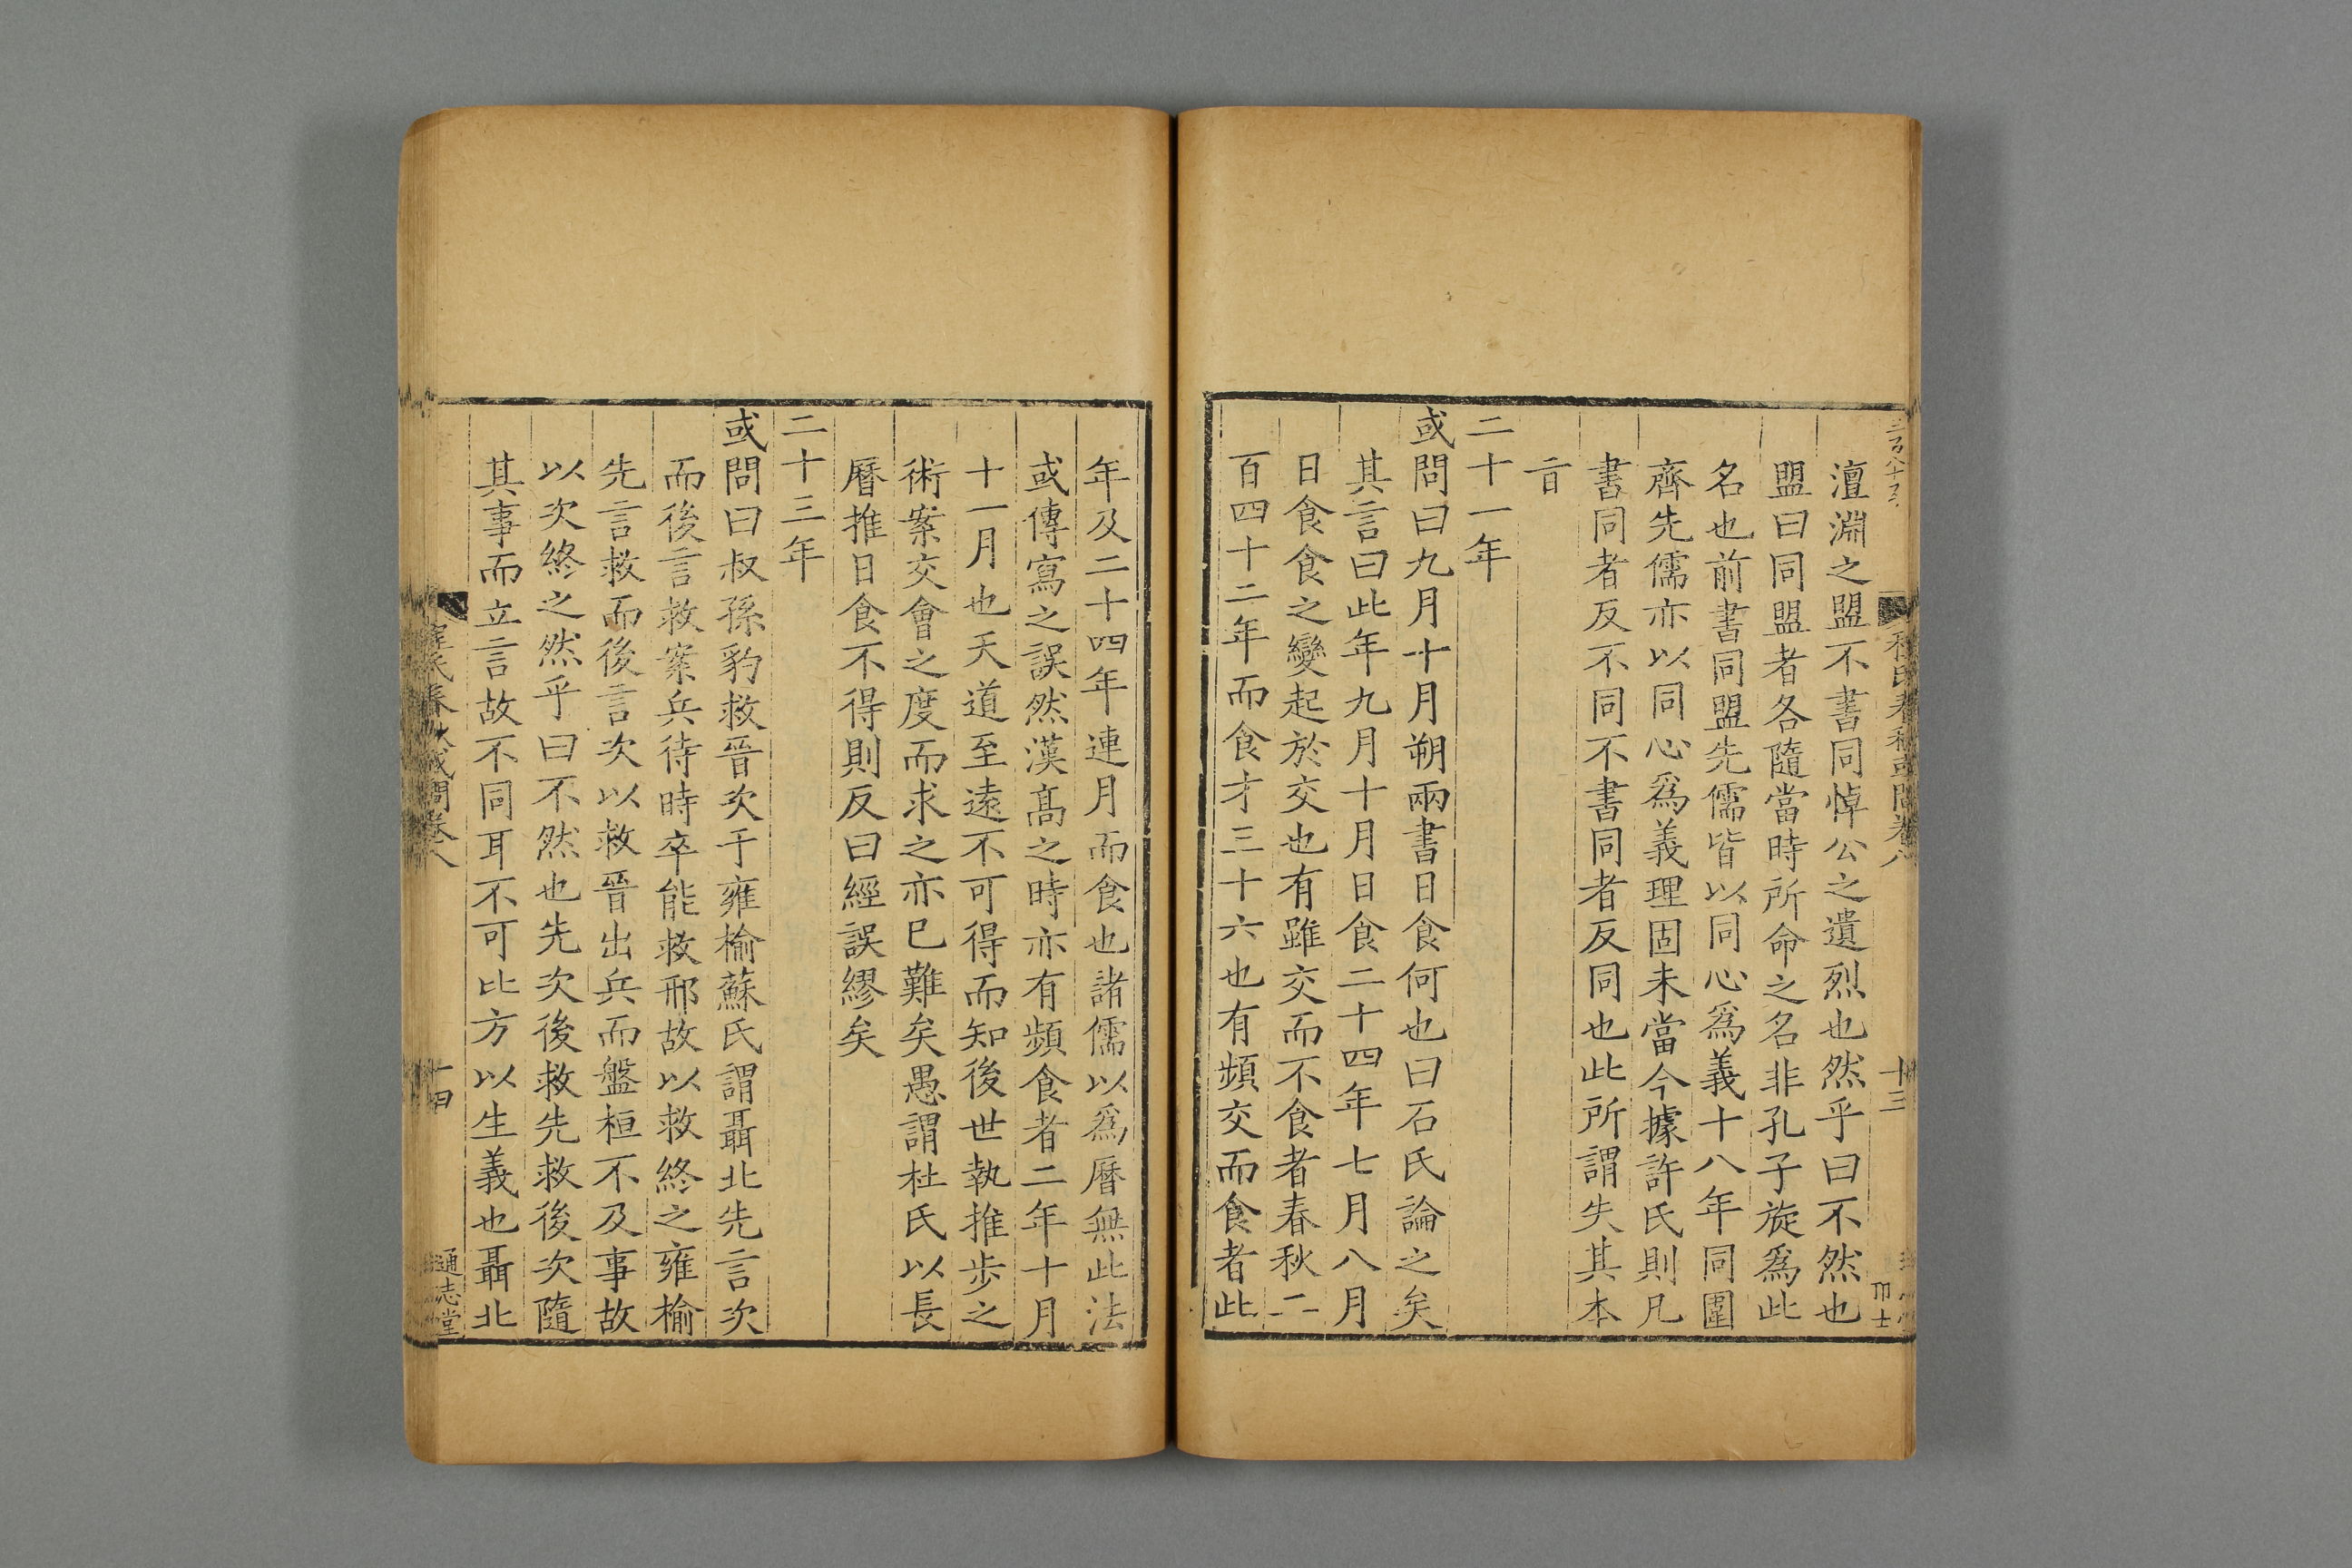 澶淵之盟不書同悼公之遺烈也然乎曰不然也
盟曰同盟者各隨當時所命之名非孔子旋爲此
名也前書同盟先儒皆以同心爲義十八年同圍
齊先儒亦以同心爲義理固未當今據許氏則凡
書同者反不同不書同者反同也此所謂失其本
㫖
二十一年
或問曰九月十月朔兩書日食何也曰石氏論之矣
其言曰此年九月十月日食二十四年七月八月
日食食之變起於交也有雖交而不食者春秋二
百四十二年而食才三十六也有頻交而食者此
年及二十四年連月而食也諸儒以爲曆無此法
或傳寫之誤然漢髙之時亦有頻食者二年十月
十一月也天道至遠不可得而知後世執推步之
術案交會之度而求之亦已難矣愚謂杜氏以長
曆推日食不得則反曰經誤繆矣
二十三年
或問曰叔孫豹救晉次于雍榆蘇氏謂聶北先言次
而後言救案兵待時卒能救邢故以救終之雍榆
先言救而後言次以救晉出兵而盤桓不及事故
以次終之然乎曰不然也先次後救先救後次隨
其事而立言故不同耳不可比方以生義也聶北
程氏春秋或問卷八
十三
十四
通志堂